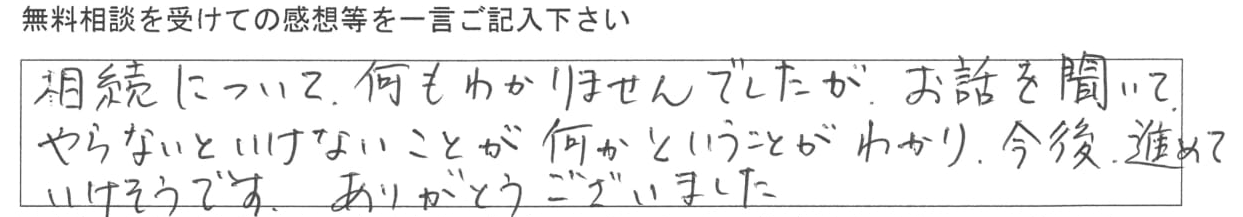 無料相談を受けての感想等を一言ご記入下さい
相続について、何もわかりませんでしたが、お話を聞いて、
やらないといけないことが何かということがわかり、今後、進めて
いけそうです。ありがとうございました